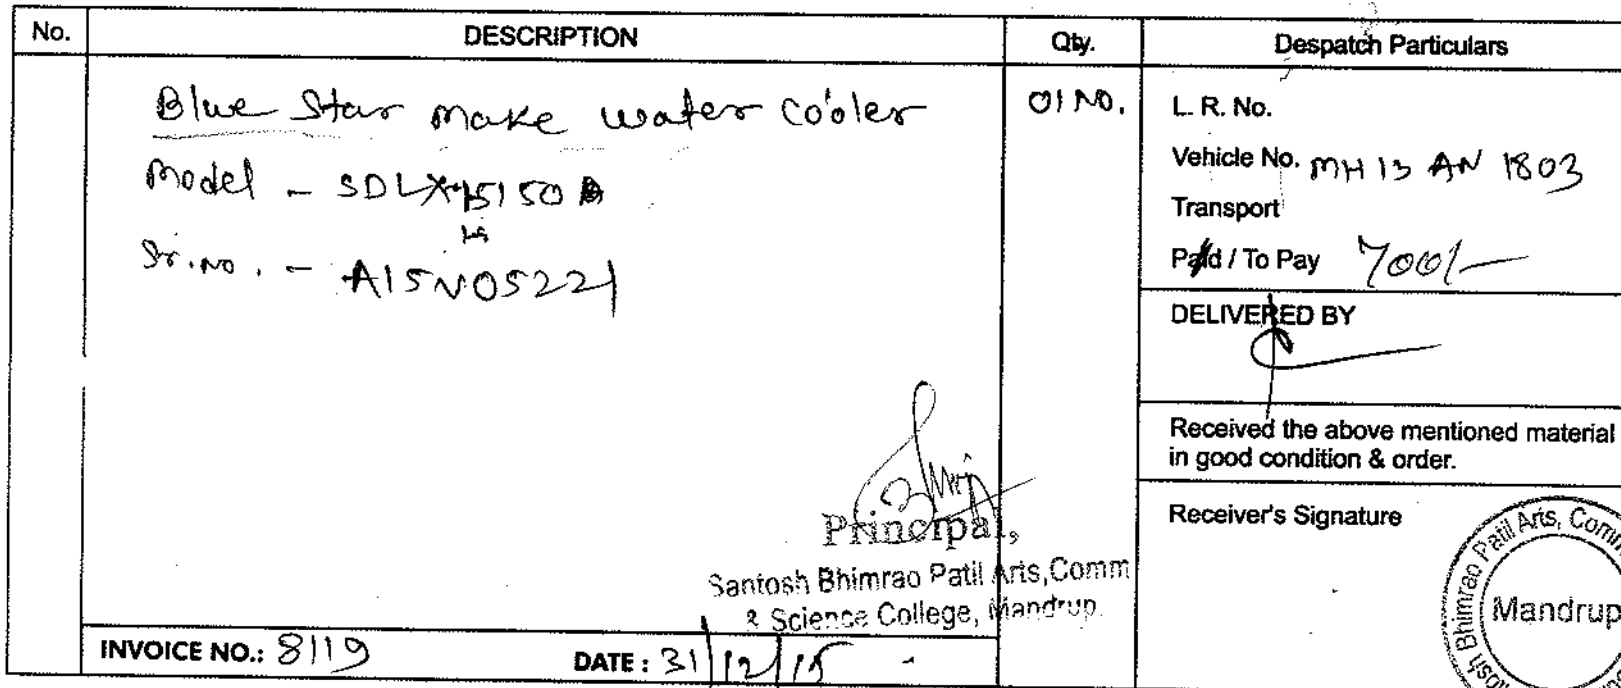 No. DESCRIPTION Qty. Despatch Particulars
Blue Star make water cooler 01 No.
Model - SDLX
Sr. No. - A15N05221
L. R. No.
Vehicle No. MH 13 AN 1803
Transport
Paid / To Pay 700/-
DELIVERED BY
Received the above mentioned material
in good condition & order.
Receiver's Signature
Principal,
Santosh Bhimrao Patil Arts,Comm
& Science College, Mandrup.
INVOICE NO.: 8119 DATE : 31/12/15
Bhimrao Patil Arts, Comm
Mandrup